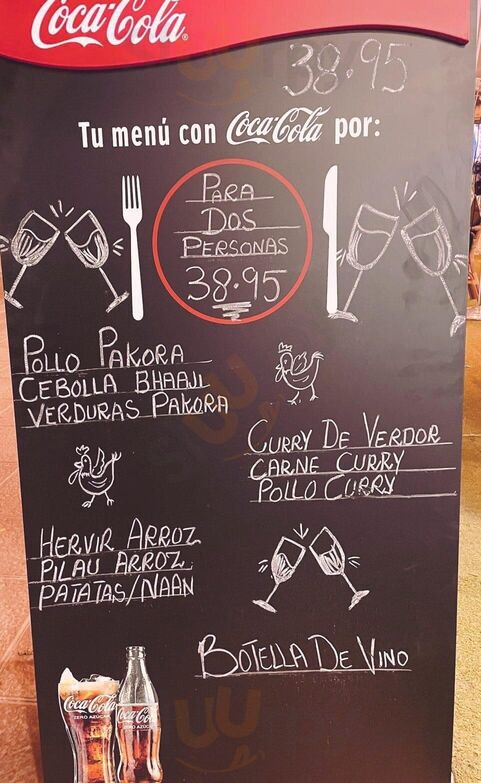 Coca-Cola
38.95
Tu menú con Coca-Cola por:
PARA
DOS
PERSONAS
38.95
POLLO PAKORA
CEBOLLA BHAAJI
VERDURAS PAKORA
CURRY DE VERDOR
CARNE CURRY
POLLO CURRY
HERVIR ARROZ
PILAU ARROZ
PATATAS/NAAN
BOTELLA DE VINO
Coca-Cola
ZERO AZÚCAR
Coca-Co
RO AZÚCA